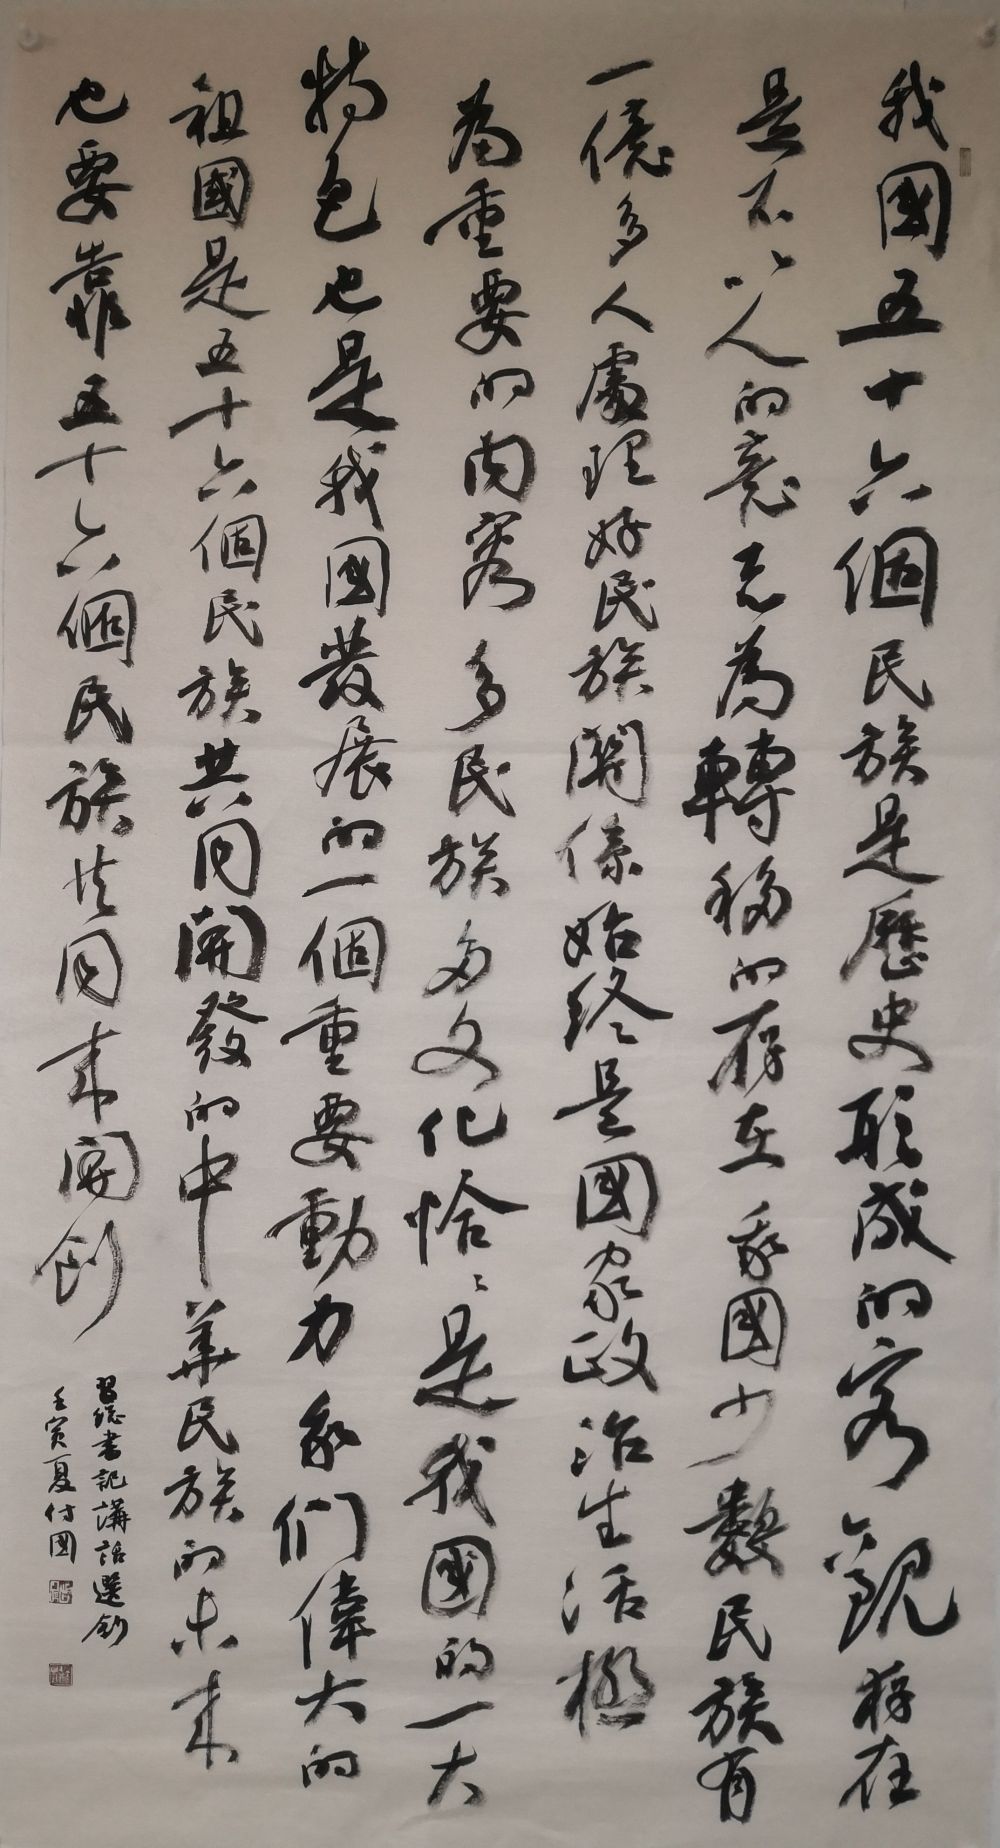 我國五十六個民族是歷史形成的客觀存在
是不以人的意志為轉移的存在我國少數民族有
一億多人處理好民族關係始終是國家政治生活極
為重要的内容多民族多文化恰恰是我國的一大
特色也是我國發展的一個重要動力我們偉大的
祖國是五十六個民族共同開發的中華民族的未来
也要靠五十六個民族共同来開創
習總書記講話選鈔
壬寅夏付國